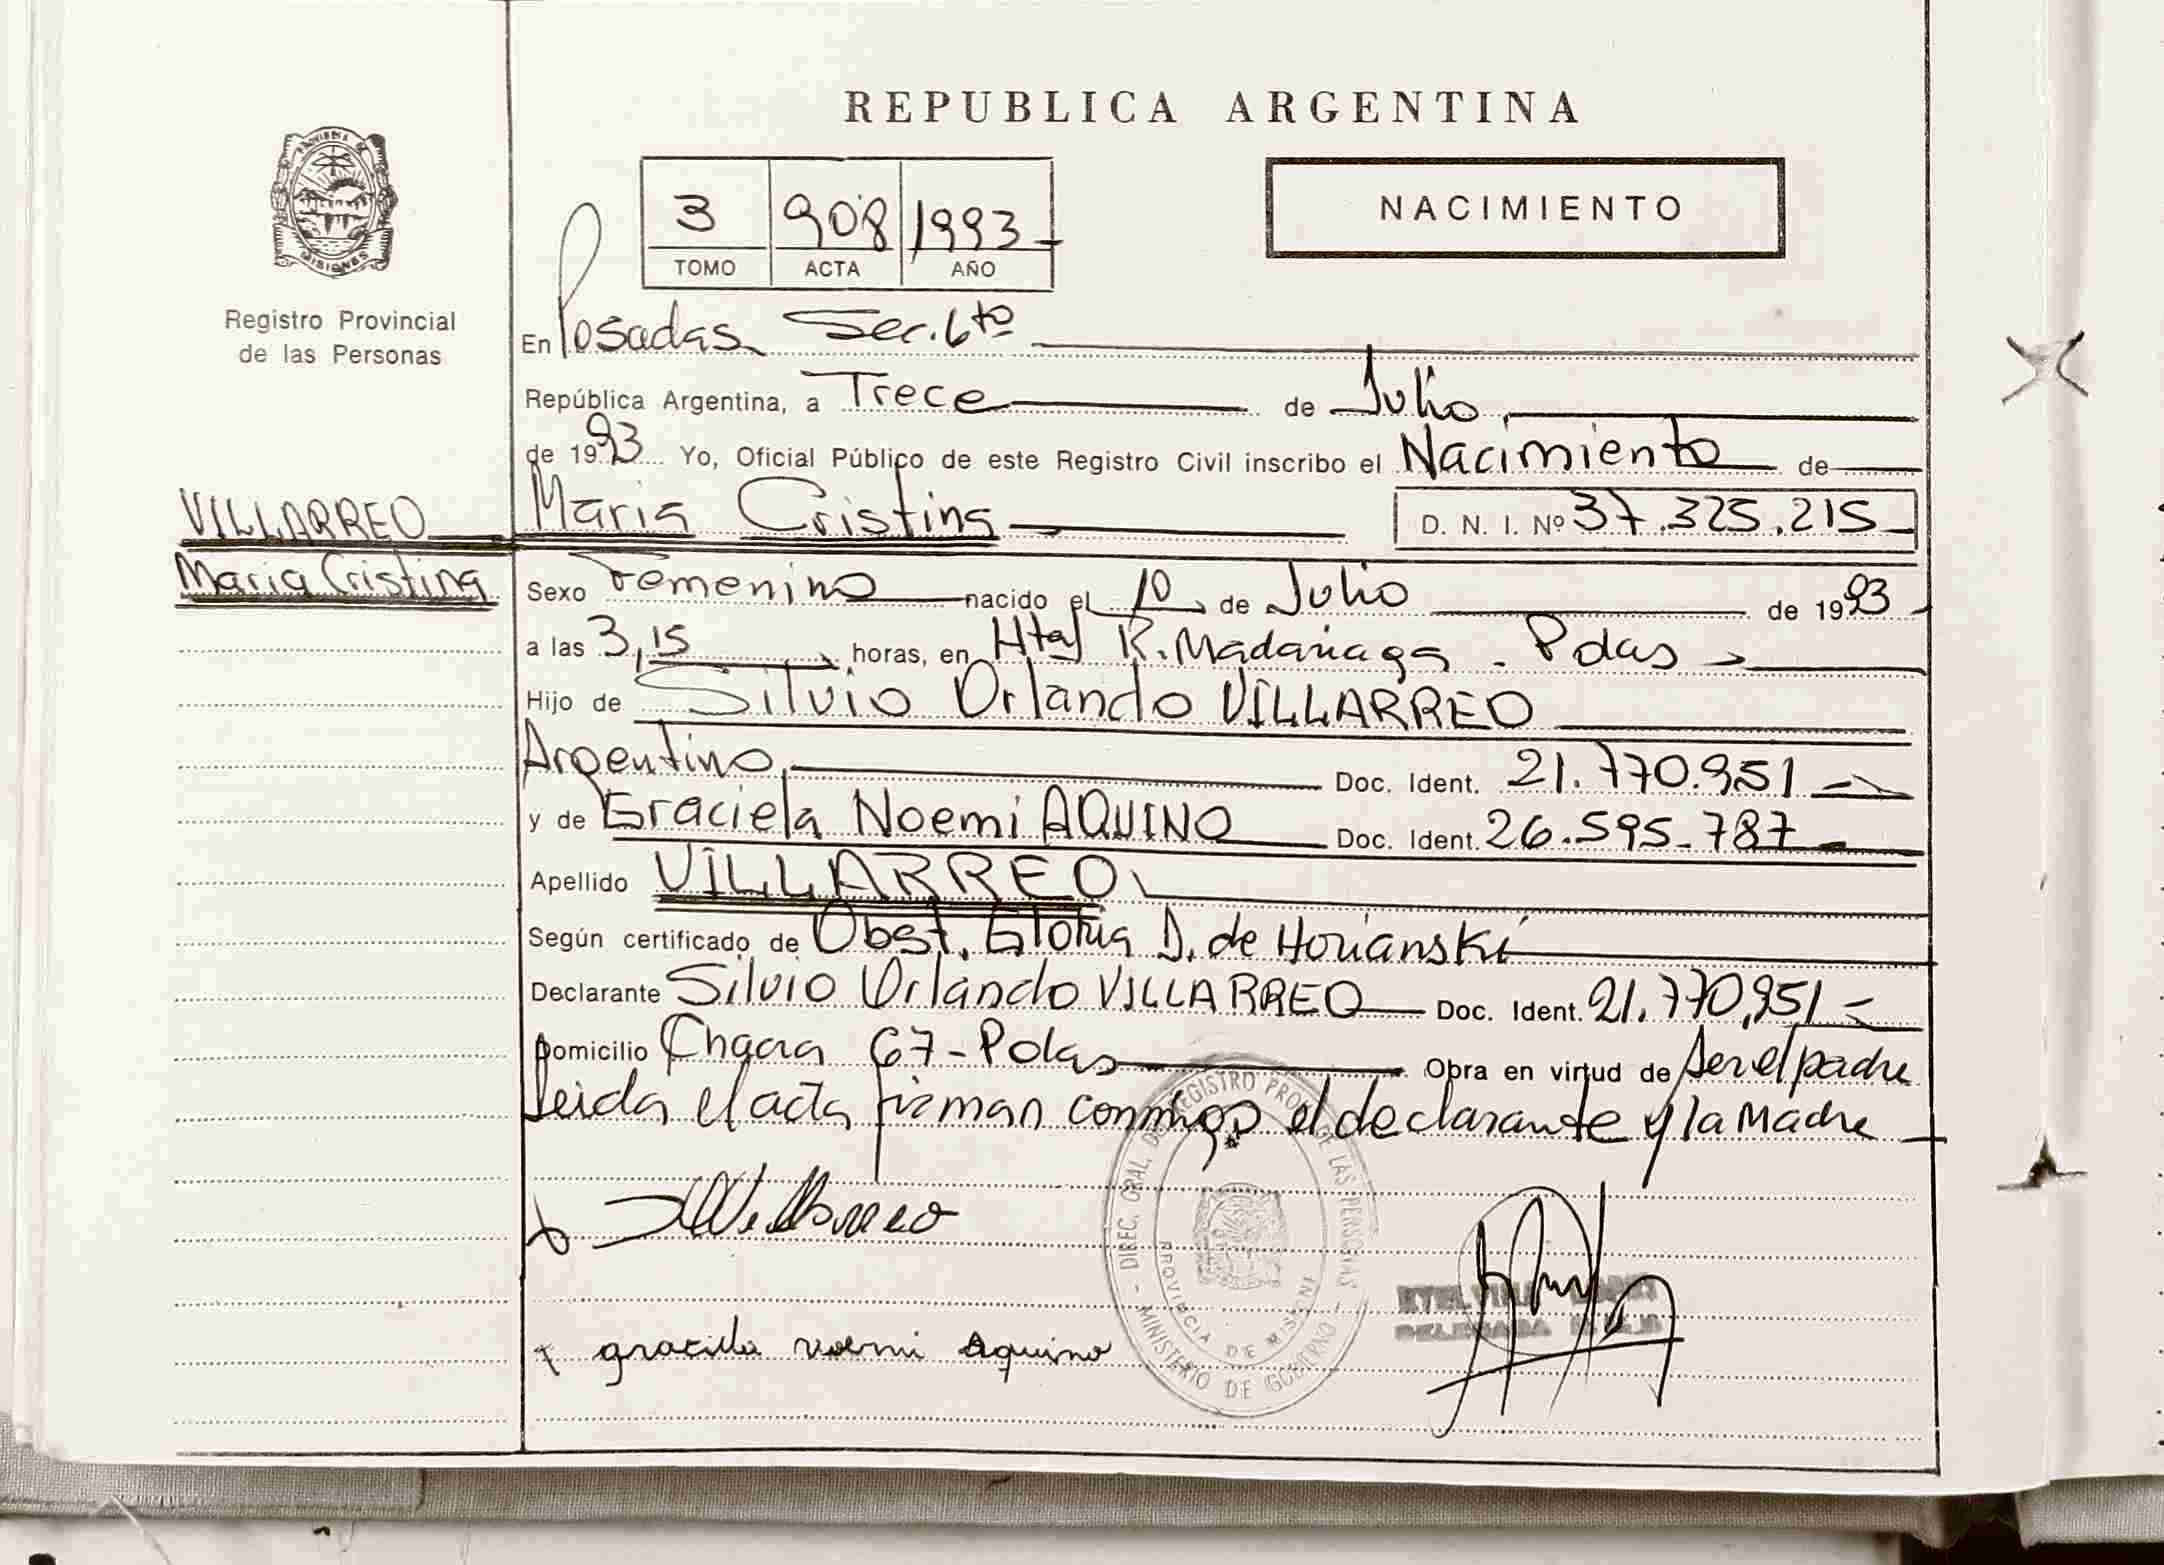 REPUBLICA ARGENTINA
PROVINCIA DE
MISIONES
Registro Provincial
de las Personas
3 908 1993
TOMO ACTA AÑO
NACIMIENTO
En Posadas Sec. 6to
República Argentina, a Trece de Julio
de 1993 Yo, Oficial Público de este Registro Civil inscribo el Nacimiento de
VILLARREO
Maria Cristina
Maria Cristina D. N. I. Nº 37.325.215
Sexo Femenino nacido el 10 de Julio de 1993
a las 3,15 horas, en Htal R. Madariaga - Pdas
Hijo de Silvio Orlando VILLARREO
Argentino Doc. Ident. 21.770.951
y de Graciela Noemi AQUINO Doc. Ident. 26.595.787
Apellido VILLARREO
Según certificado de Obst. Gloria D. de Horianski
Declarante Silvio Orlando VILLARREO Doc. Ident. 21.770,951
Domicilio Chacra 67 - Pdas Obra en virtud de ser el padre
leida el acta firman conmigo el declarante y la Madre
DIREC. GRAL. DEL REGISTRO PROV. DE LAS PERSONAS
PROVINCIA DE MISIONES
MINISTERIO DE GOBIERNO
Villarreo
graciela noemi Aquino
DELEGADA